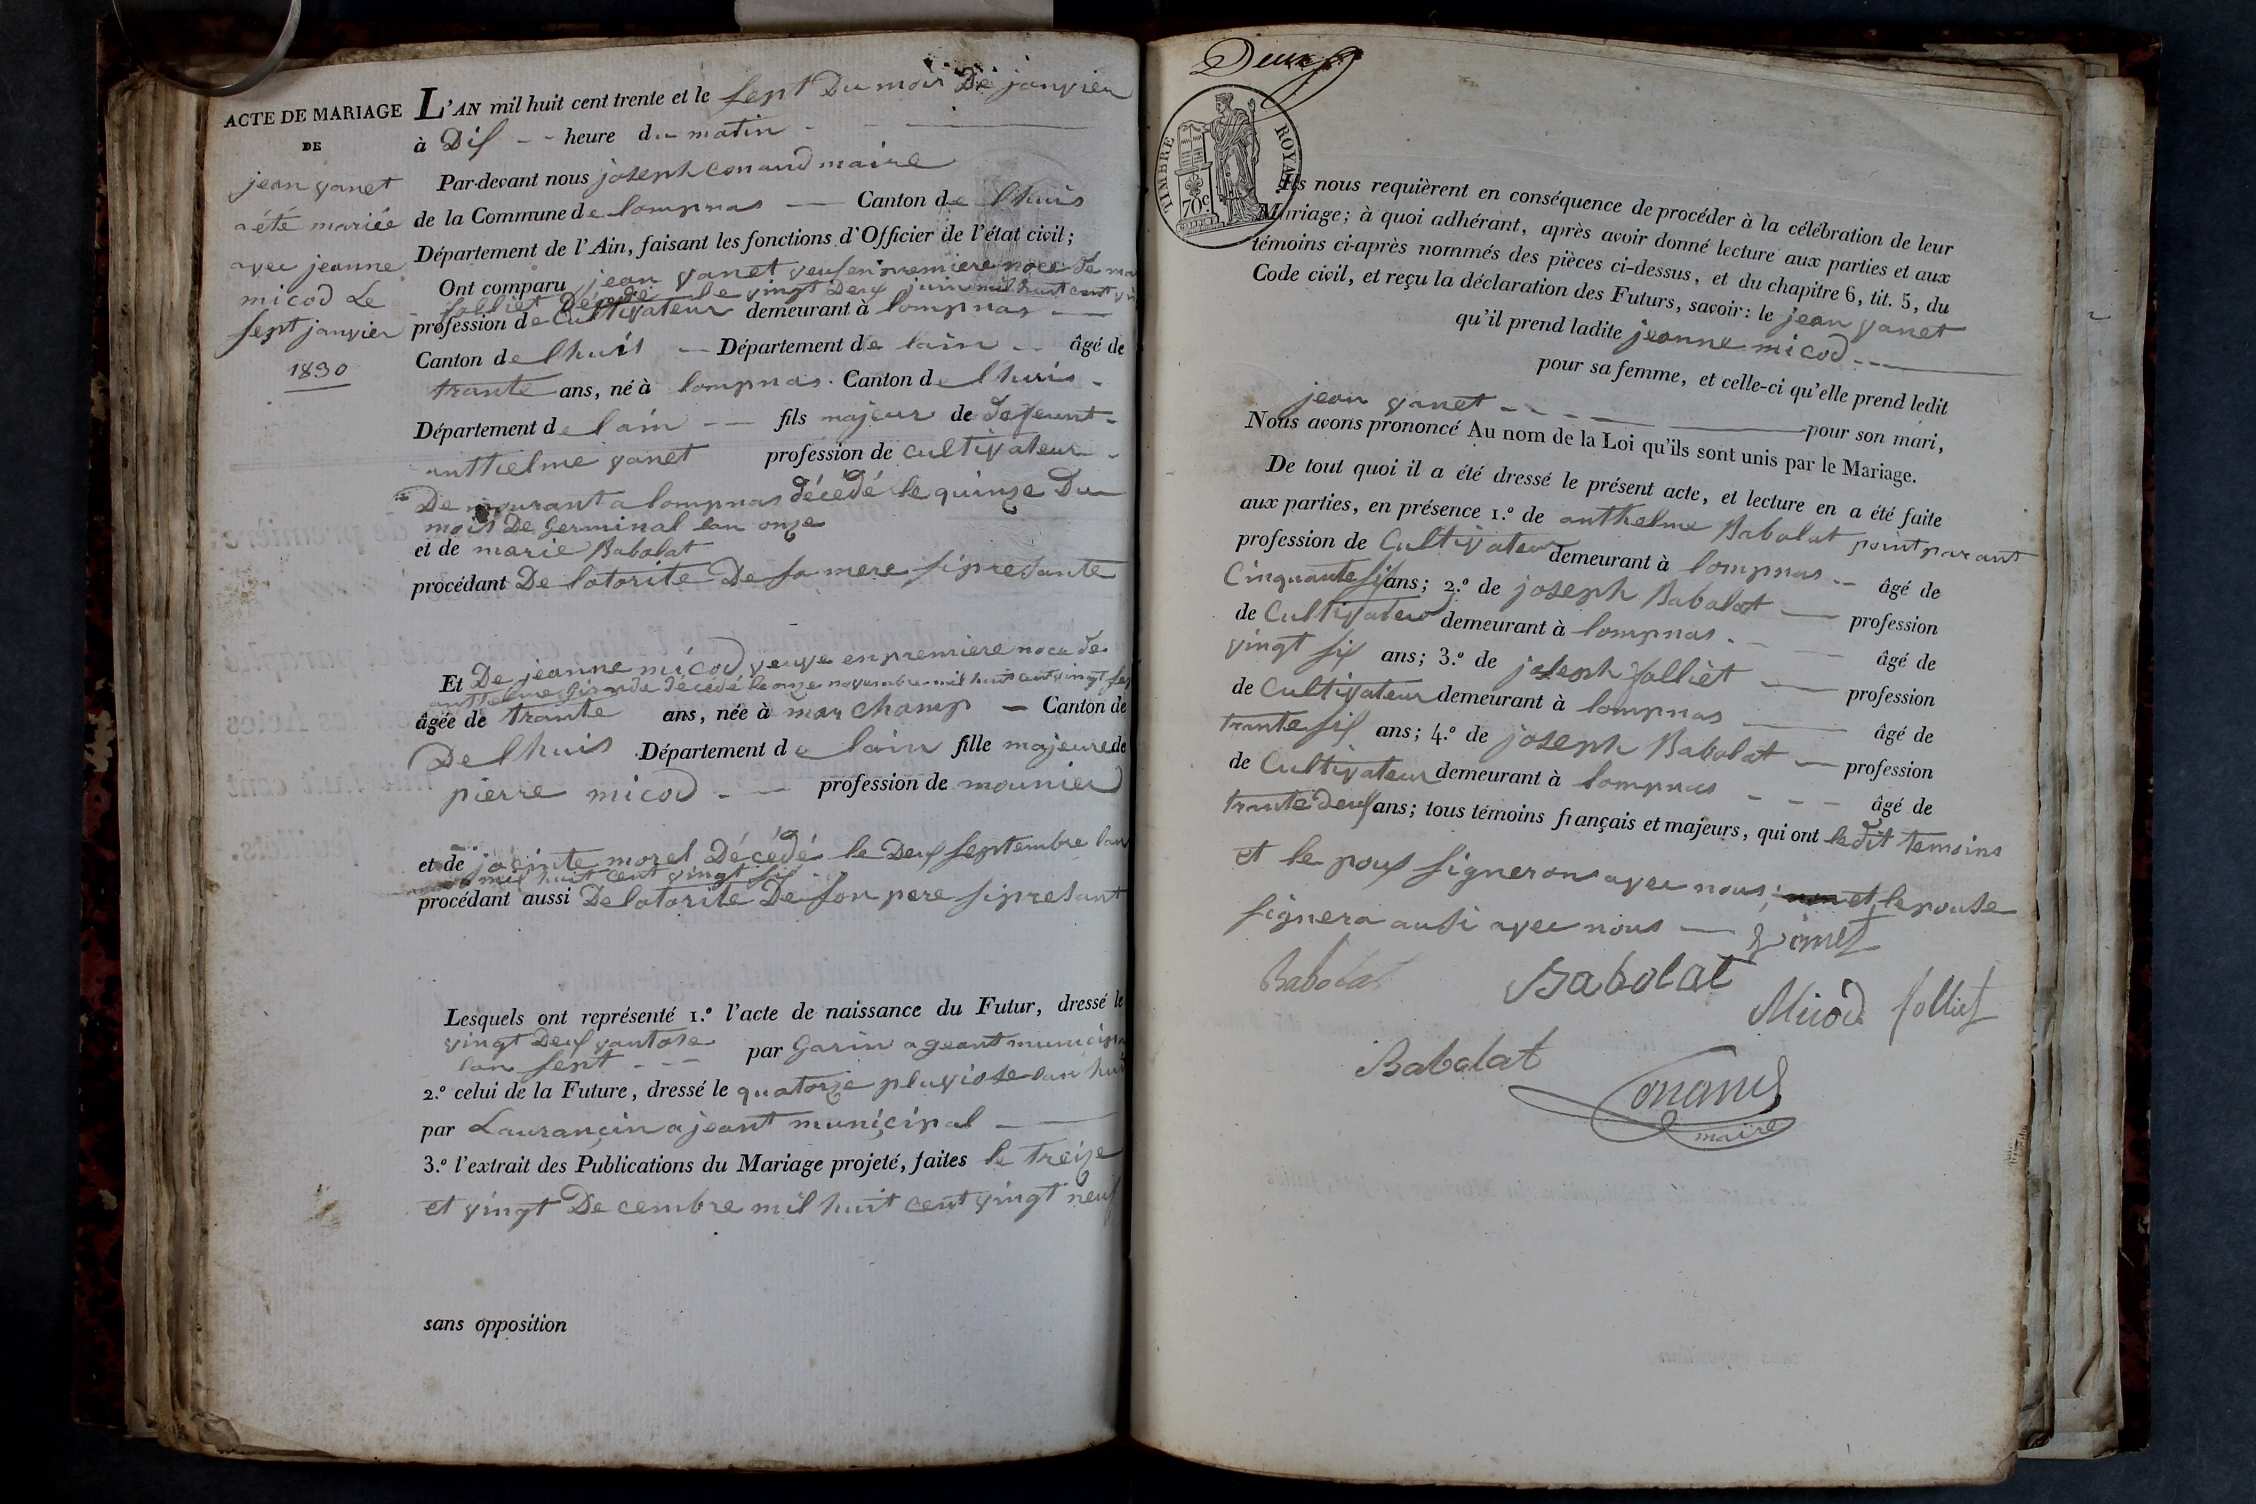 ACTE DE MARIAGE
DE
jean vanet
a été mariée
avec jeanne
micod Le
sept janvier
1830
L'AN mil huit cent trente et le sept Du mois De janvier
à Dis heure du matin
Par-devant nous joseph conand maire
de la Commune de lompnas — Canton de lhuis
Département de l'Ain, faisant les fonctions d'Officier de l'état civil;
Ont comparu jean vanet veuf en premiere noce de
folliet Décedé le vingt Deux juin mil huit cent
profession de Cultivateur demeurant à lompnas
Canton de lhuis — Département de lain âgé de
trante ans, né à lompnas. Canton de lhuis
Département de lain fils majeur de defeunt
anthelme vanet profession de cultivateur
Demourant a lompnas décedé le quinze Du
mois De Germinal lan onze
et de marie Babolat
procédant De latorite De sa mere sipresante
Et De jeanne micod veuve en premiere noce de
anthelme décedé le onze novembre mil huit cent vingt
âgée de trante ans, née à marchamp — Canton de
De lhuis Département de lain fille majeure de
pierre micod profession de mounier
et de jacinte morel Décédé le Deux septembre lan
mil huit cent vingt six
procédant aussi De latorite De son pere sipresant
Lesquels ont représenté 1.º l'acte de naissance du Futur, dressé le
vingt Deux vantose
lan sept par Garin ageant municipa
2.º celui de la Future, dressé le quatorze pluviose lan huit
par Laurançin ajeant municipal
3.º l'extrait des Publications du Mariage projeté, faites le treize
et vingt Decembre mil huit cent vingt neuf
sans opposition
Deux
TIMBRE ROYAL
70c.
Ils nous requièrent en conséquence de procéder à la célébration de leur
Mariage; à quoi adhérant, après avoir donné lecture aux parties et aux
témoins ci-après nommés des pièces ci-dessus, et du chapitre 6, tit. 5, du
Code civil, et reçu la déclaration des Futurs, savoir: le jean vanet
qu'il prend ladite jeanne micod
pour sa femme, et celle-ci qu'elle prend ledit
jean vanet pour son mari,
Nous avons prononcé Au nom de la Loi qu'ils sont unis par le Mariage.
De tout quoi il a été dressé le présent acte, et lecture en a été faite
aux parties, en présence 1.º de anthelme Babolat point parant
profession de Cultivateur demeurant à lompnas âgé de
Cinquante six ans; 2.º de joseph Babolat — profession
de Cultivateur demeurant à lompnas âgé de
vingt six ans; 3.º de joseph folliet — profession
de Cultivateur demeurant à lompnas — âgé de
trante six ans; 4.º de joseph Babolat — profession
de Cultivateur demeurant à lompnas âgé de
trante deux ans; tous témoins français et majeurs, qui ont ledit temoins
et le poux signerons avec nous; et lepouse
signera ausi avec nous — vanet
Babolat Babolat Micod folliet
Babolat
Conand
maire